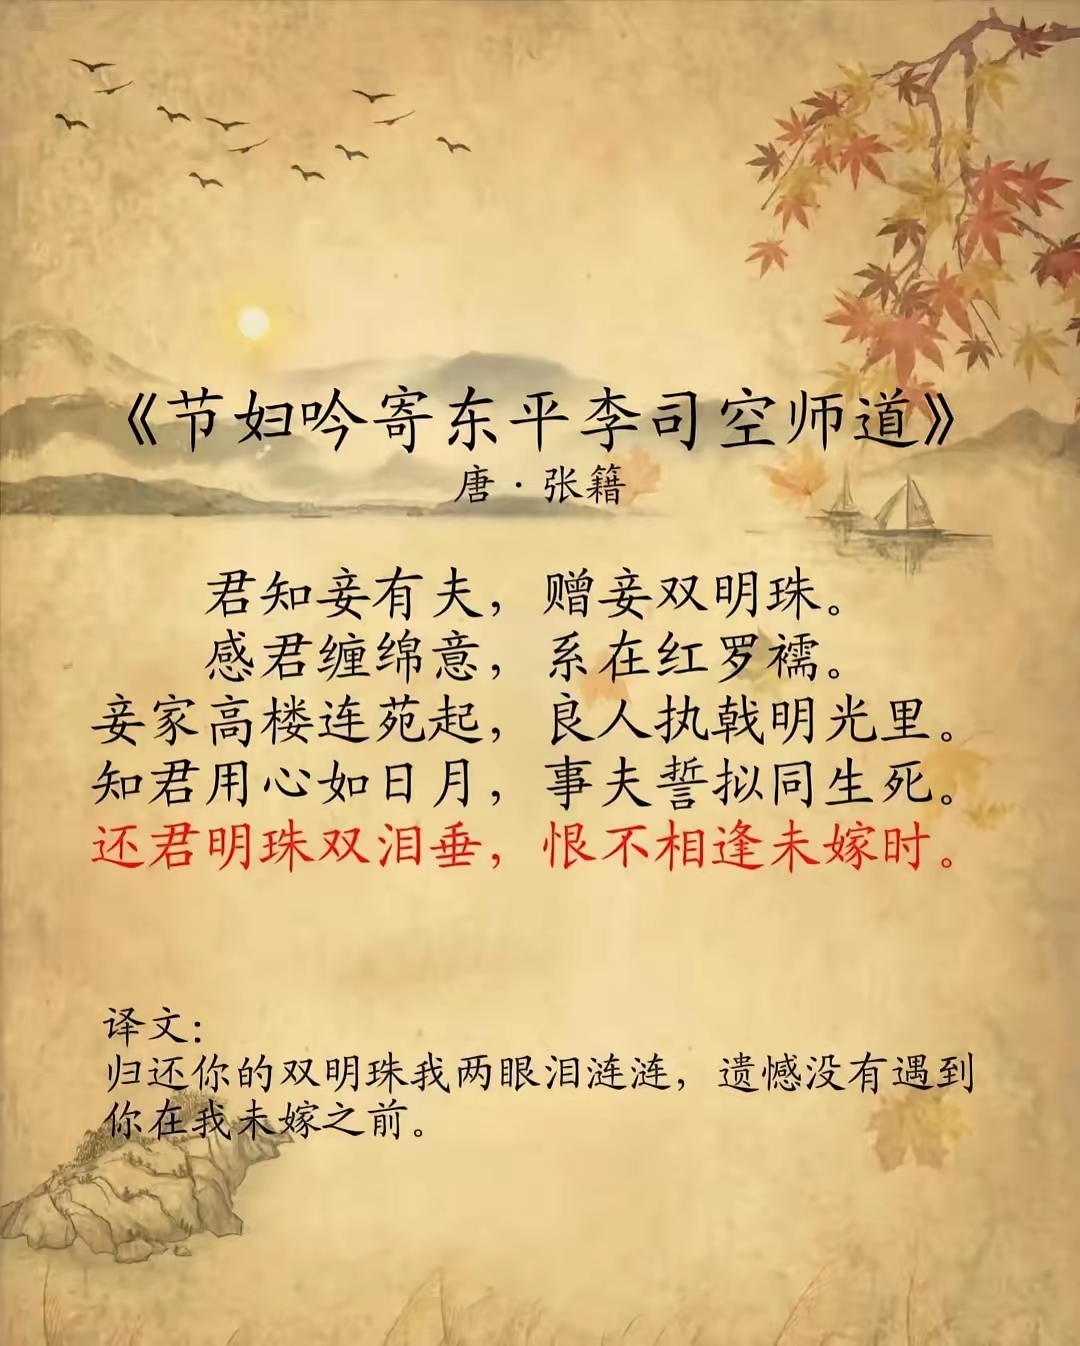 《节妇吟寄东平李司空师道》
唐·张籍
君知妾有夫，赠妾双明珠。
感君缠绵意，系在红罗襦。
妾家高楼连苑起，良人执戟明光里。
知君用心如日月，事夫誓拟同生死。
还君明珠双泪垂，恨不相逢未嫁时。
译文：
归还你的双明珠我两眼泪涟涟，遗憾没有遇到
你在我未嫁之前。